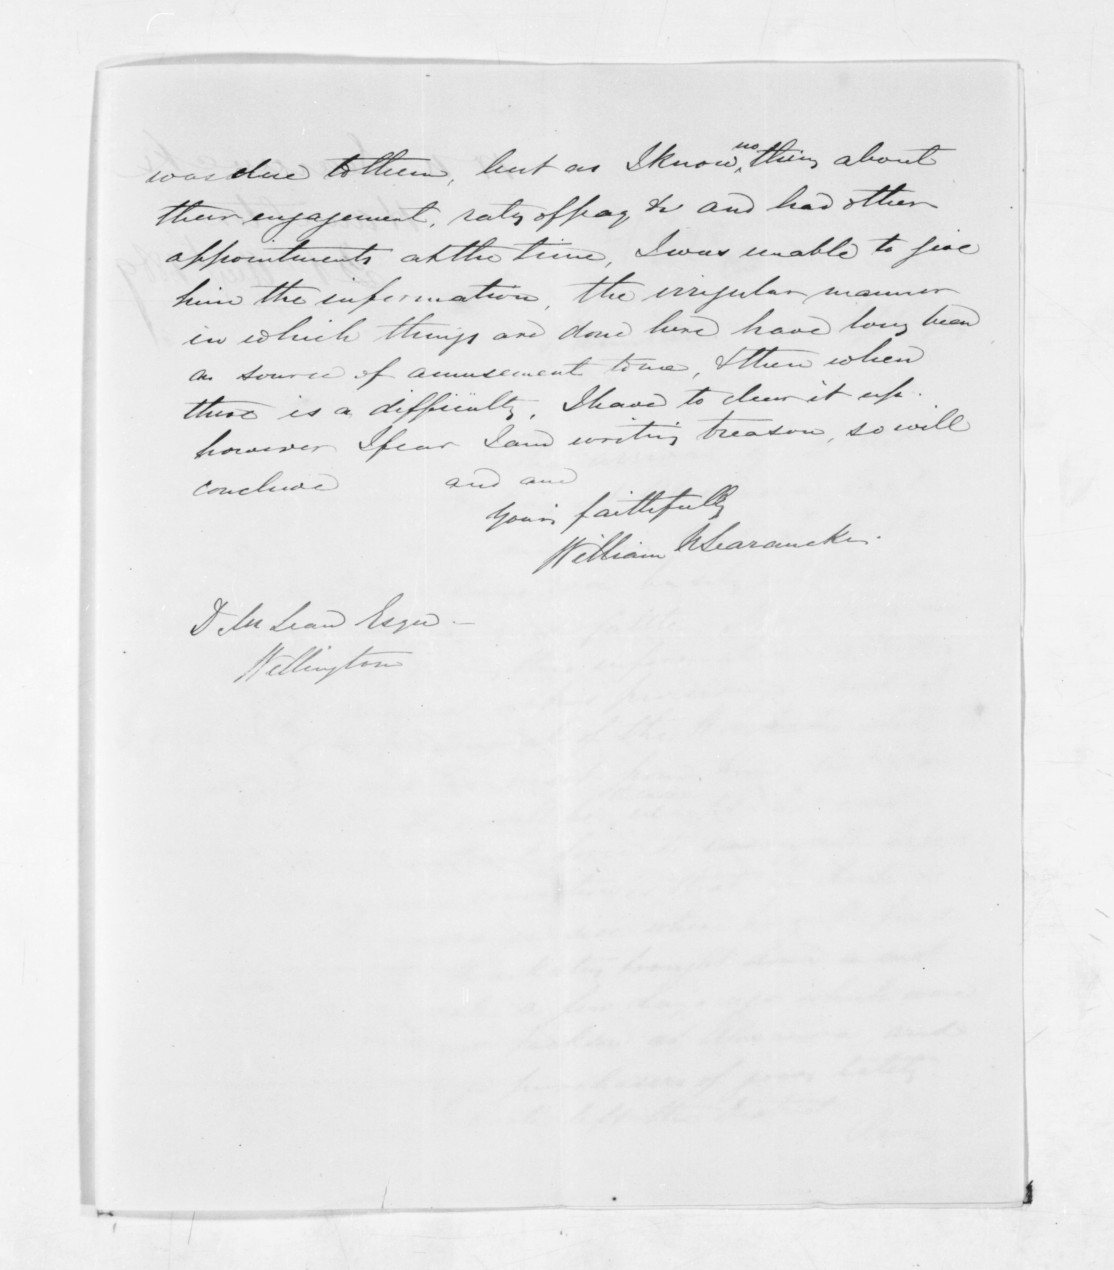 was due to them, but as I know nothing about
their engagement, rate of pay &c and had other
appointments at the time, I was unable to give
him the information, the irregular manner
in which things are done here have long been
a source of amusement to me, & then when
there is a difficulty, I have to clear it up.
however I fear I am writing treason, so will
conclude and am
Yours faithfully
William N Searancke.
D McLean Esqre -
Wellington